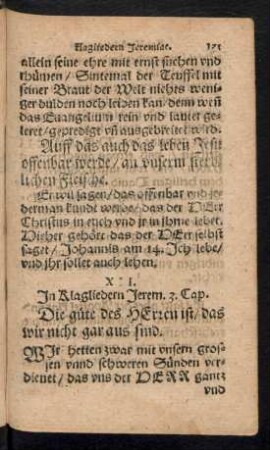 Klagliedern Jeremiae. 171
allein seine ehre mit ernst suchen vnd
rhümen / Sintemal der Teuffel mit
seiner Braut der Welt nichts weni-
ger dulden noch leiden kan / denn weñ
das Euangeliū rein vnd lauter ge-
leret / geprediget vñ ausgebreitet wird.
Auff das auch das leben Jesu
offenbar werde / an vnserm sterb
lichen Fleische.
Er wil sagen / das offenbar vnd je-
derman kunde werde / das der HErr
Christus in euch vnd jr in jhme lebet.
Hieher gehört das der HErr selbst
saget / Johannis am 14. Ich lebe /
vnd jhr sollet auch leben.
XI.
In Klagliedern Jerem. 3. Cap.
Die güte des HErren ist / das
wir nicht gar aus sind.
WIr hetten zwar mit vnsern gros-
sen vnnd schweren Sünden ver-
dienet / das vns der HERR gantz
vnd